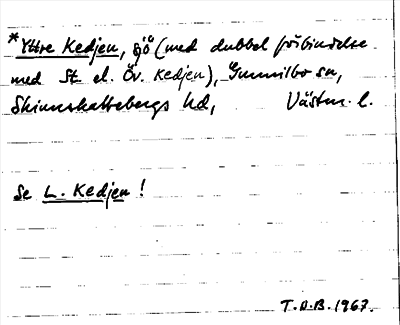 *Yttre Kedjen, sjö (med dubbel förbindelse
med St. el. Öv. Kedjen), Gunnilbo sn,
Skinnskattebergs hd, Västm. l.
Se L. Kedjen!
T.A.B. 1967.